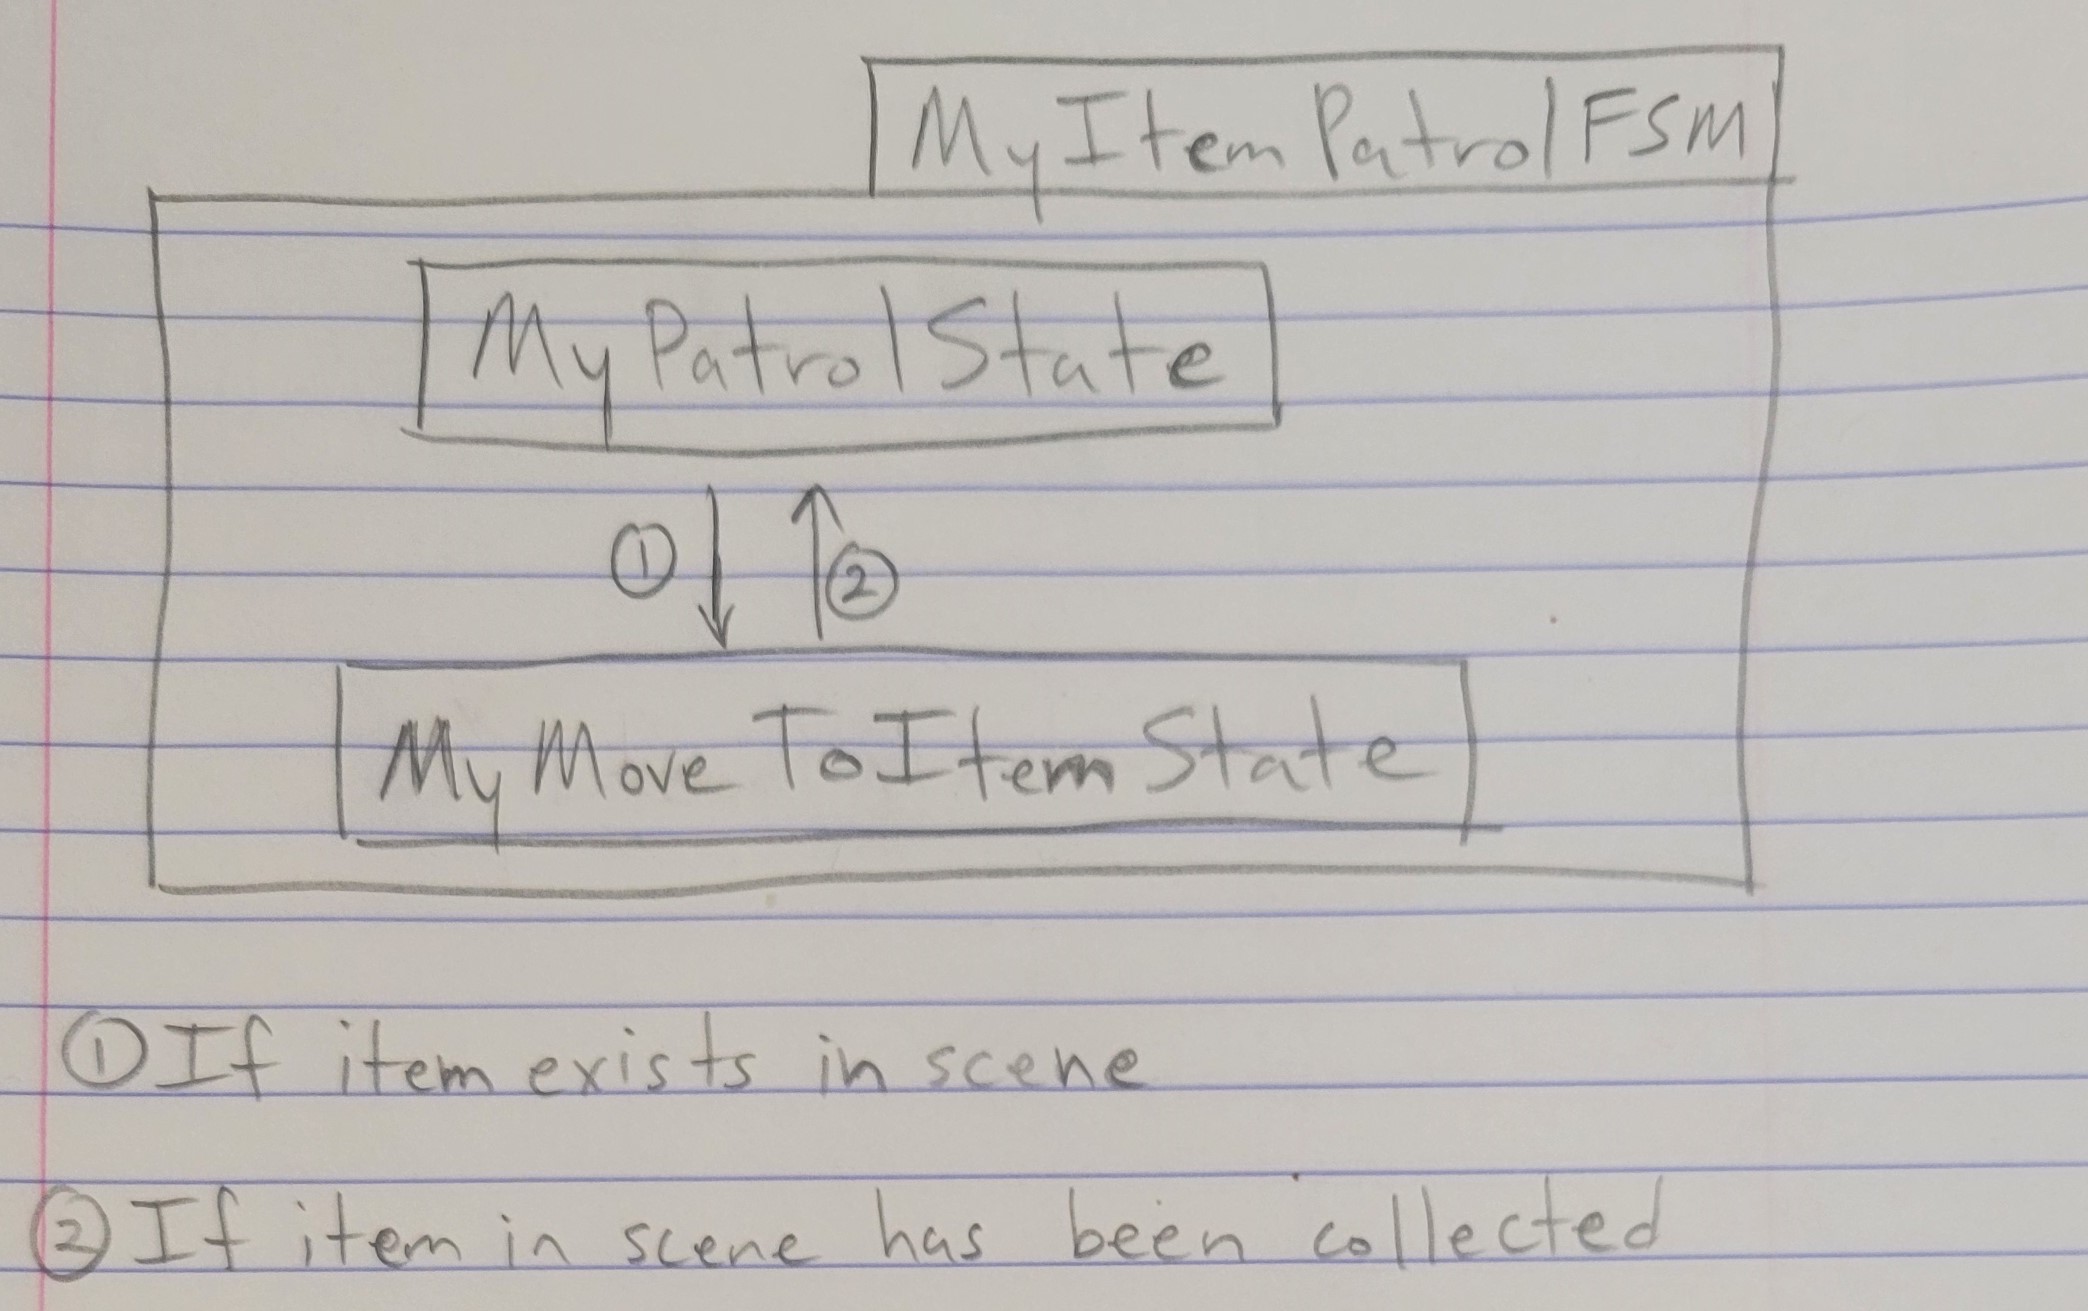 MyItemPatrolFSM
MyPatrolState
① ②
MyMoveToItemState
① If item exists in scene
② If item in scene has been collected